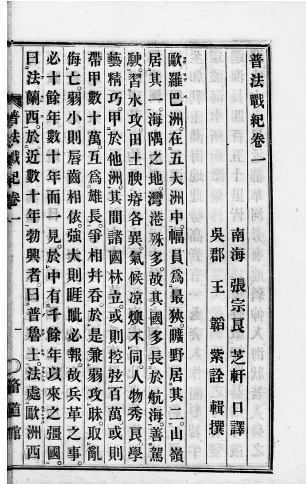 普法戰紀卷一
南海 張宗良 芝軒 口譯
吳郡 王韜 紫詮 輯撰
歐羅巴洲在五大洲中幅員爲最狹曠野居其二山嶺
居其一海隅之地灣港殊多故其國多長於航海善駕
駛習水攻田土腴瘠各異氣候凉燠不同人物秀良學
藝精巧甲於他洲其間諸國林立或則控弦百萬或則
帶甲數十萬互爲雄長爭相幷吞於是兼弱攻昧取亂
侮亡弱小則唇齒相依強大則睚眦必報故兵革之事
必十餘年數十年而一見於中有千餘年以來之彊國
曰法蘭西於近數十年勃興者曰普魯士法處歐洲西
普法戰紀卷一 一